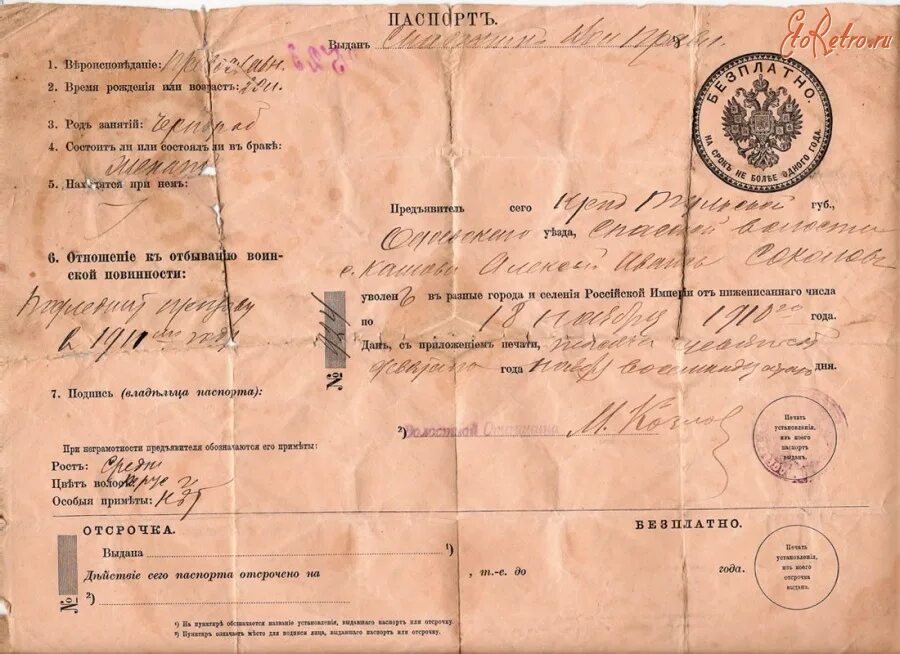 ПАСПОРТЪ.
EtoRetro.ru
Выданъ
1. Вѣроисповѣданіе: Православн.
2. Время рожденія или возрастъ:
3. Родъ занятій:
4. Состоитъ ли или состоялъ ли въ бракѣ:
женатъ
5. Находятся при немъ:
БЕЗПЛАТНО.
НА СРОКЪ НЕ БОЛѢЕ ОДНОГО ГОДА.
Предъявитель сего Кр Тульской губ.,
Одоевскаго уѣзда, Спасской волости
с. Алексѣй Ивановъ Соколовъ
уволенъ въ разные города и селенія Россійской Имперіи отъ нижеписаннаго числа
по 18 Ноября 1910 года.
Данъ, съ приложеніемъ печати, тысяча девятьсот
девятаго года Ноября восемнадцатаго дня.
6. Отношеніе къ отбыванію воин-
ской повинности:
Подлежитъ призыву
въ 1911 году
№ 724
7. Подпись (владѣльца паспорта):
²) Волостной Старшина
Печать
установленія,
изъ коего
паспортъ
выданъ.
При неграмотности предъявителя обозначаются его примѣты:
Ростъ: Средн
Цвѣтъ волосъ:
Особыя примѣты: нѣт
ОТСРОЧКА.
БЕЗПЛАТНО.
Выдана ¹)
Дѣйствіе сего паспорта отсрочено на , т.-е. до года.
№ ²)
Печать
установленія,
изъ коего
отсрочка
выдана.
¹) На пунктирѣ обозначается названіе установленія, выдавшаго паспортъ или отсрочку.
²) Пунктиръ означаетъ мѣсто для подписи лица, выдавшаго паспортъ или отсрочку.